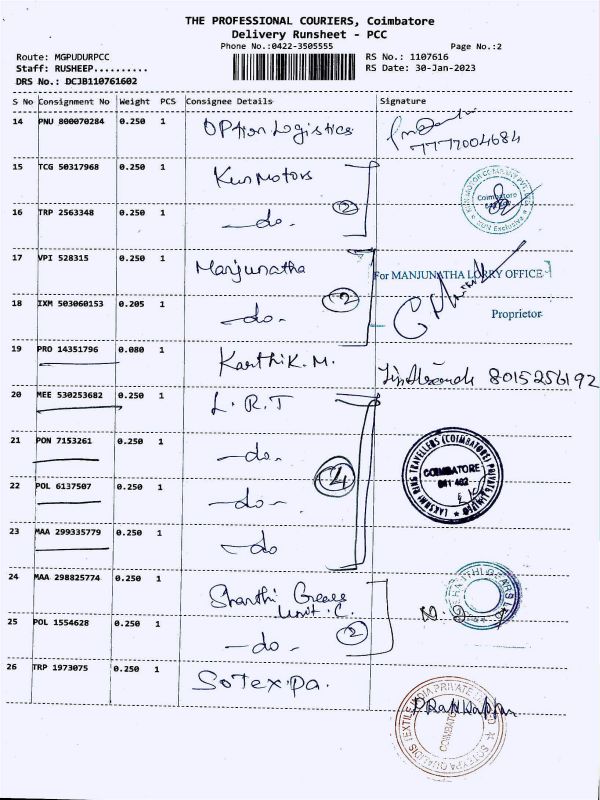 THE PROFESSIONAL COURIERS, Coimbatore
Delivery Runsheet - PCC
Phone No.:0422-3505555 Page No.:2
Route: MGPUDURPCC RS No.: 1107616
Staff: RUSHEEP.......... RS Date: 30-Jan-2023
DRS No.: DCJB110761602
S No Consignment No Weight PCS Consignee Details Signature
14 PNU 800070284 0.250 1 Option Logistics
7777004684
15 TCG 50317968 0.250 1 Kun Motors
16 TRP 2563348 0.250 1 -do. 2
Coimbatore
17 VPI 528315 0.250 1 Manjunatha For MANJUNATHA LORRY OFFICE
18 IXM 503060153 0.205 1 -do- 2 Proprietor
19 PRO 14351796 0.080 1 Karthik.M. 8015256192
20 MEE 530253682 0.250 1 L.R.T
21 PON 7153261 0.250 1 -do-. 4
22 POL 6137507 0.250 1 -do-
23 MAA 299335779 0.250 1 -do
LAKSHMI RING TRAVELLERS (COIMBATORE) PRIVATE LIMITED
COIMBATORE
641 402
24 MAA 298825774 0.250 1 Shanthi Gears
Unit.C.
25 POL 1554628 0.250 1 -do- 2
26 TRP 1973075 0.250 1 Sotexpa.
SOTEXPA QUALIDIS TEXTILE INDIA PRIVATE LIMITED
COIMBATORE